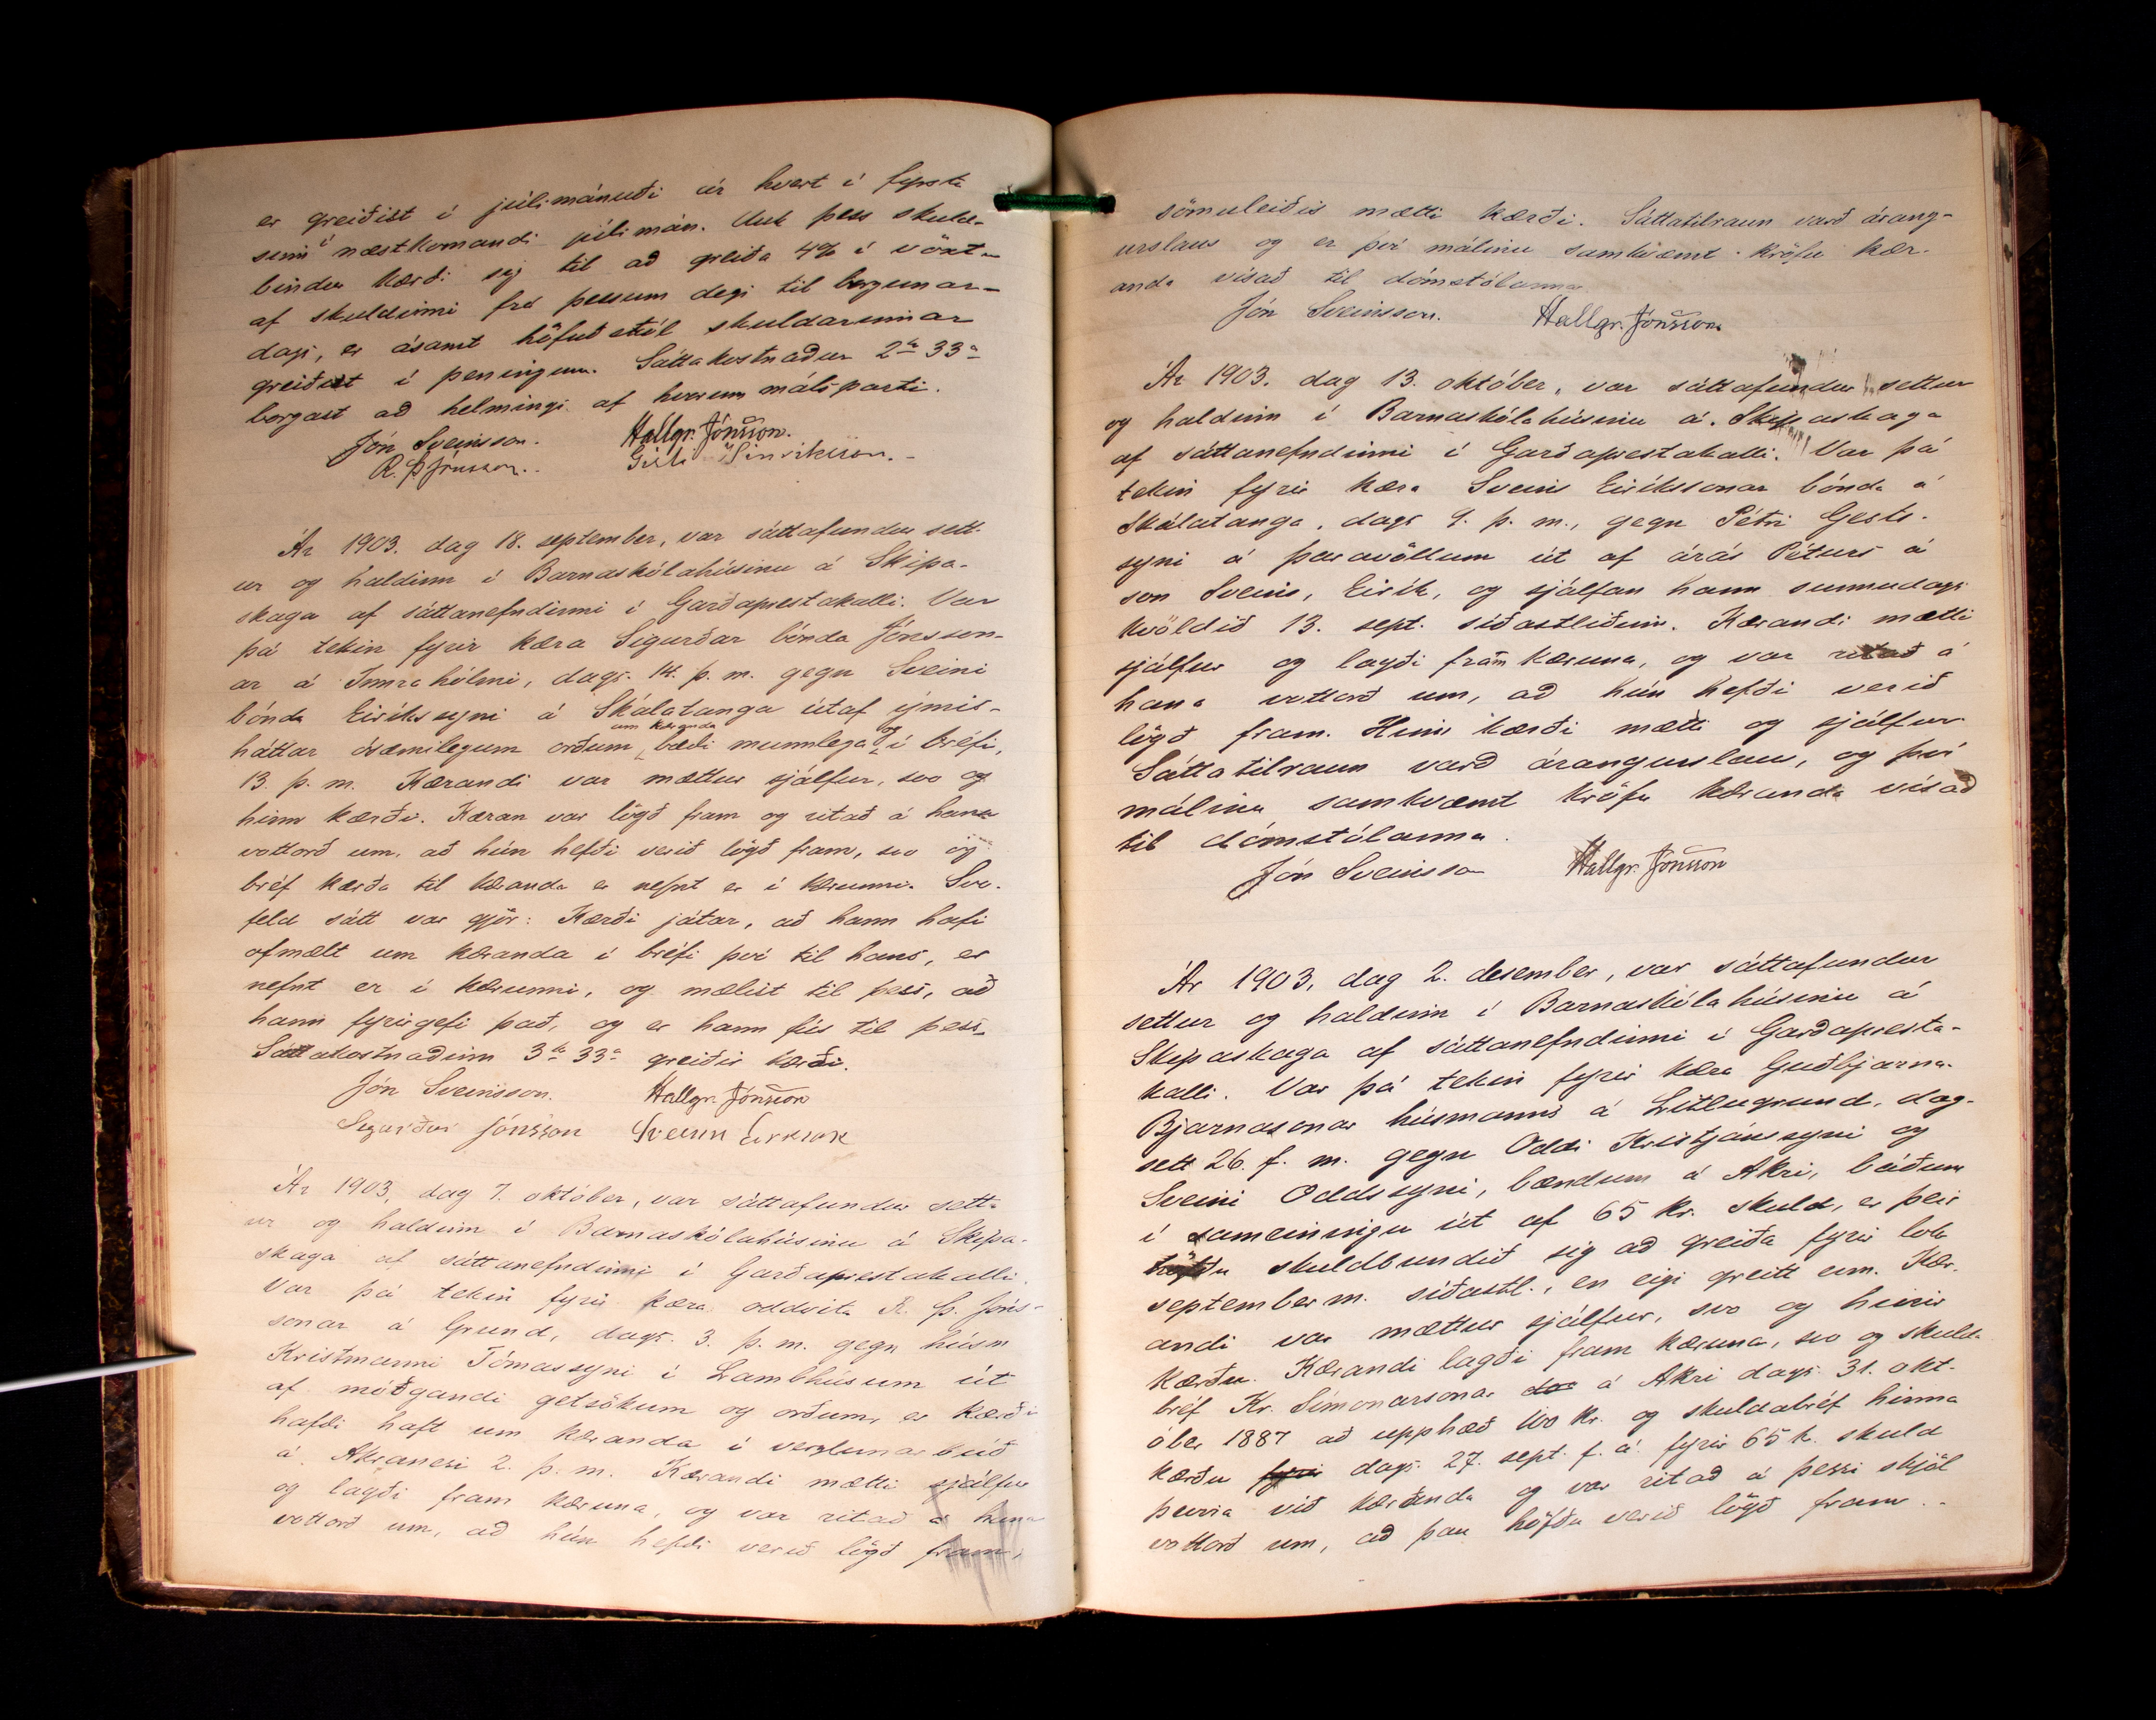 er greiðist í júlímánuði ár hvert í fyrsta
sinni í næstkomandi júlímán. Auk þess skuld-
bindur kærði sig til að greiða 4% í vöxtu
af skuldinni frá þessum degi til borgunar-
dags, er ásamt höfuðstól skuldarinnar
greiðist í peningum. Sáttakostnaður 2 kr 33 a
borgast að helmingi af hverjum málsparti.
Jón Sveinsson. Hallgr. Jónsson.
R. Þ Jónsson. Gísli
Ár 1903. dag 18. september, var sáttafundur sett-
ur og haldinn í Barnaskólahúsinu á Skipa-
skaga af sáttanefndinni í Garðaprestakalli. Var
þá tekin fyrir kæra Sigurðar bónda Jónsson-
ar á Innrahólmi, dags. 14. þ. m. gegn Sveini
bónda Eiríkssyni á Skálatanga útaf ýmis-
háttar ósæmilegum orðum um kæranda bæði munnlega og í bréfi,
13. þ. m. Kærandi var mættur sjálfur, svo og
hinn kærði. Kæran var lögð fram og ritað á hana
vottorð um, að hún hefði verið lögð fram, svo og
bréf kærða til kæranda er nefnt er í kærunni. Svo-
feld sátt var gjör: Kærði játar, að hann hafi
ofmælt um kæranda í bréfi því til hans, er
nefnt er í kærunni, og mælist til þess, að
hann fyrirgefi það, og er hann fús til þess.
Sáttakostnaðinn 3 kr 33 a greiðir kærði.
Jón Sveinsson. Hallgr. Jónsson
Sigurður Jónsson Sveinn Eiríksson
Ár 1903, dag 7. október, var sáttafundur sett-
ur og haldinn í Barnaskólahúsinu á Skipa-
skaga af sáttanefndinni í Garðaprestakalli.
Var þá tekin fyrir kæra oddvita R. Þ. Jóns-
sonar á Grund, dags. 3. þ. m. gegn húsm
Kristmanni Tómassyni í Lambhúsum út
af móðgandi getsökum og orðum, er kærði
hafði haft um kæranda í verzlunarbúð
á Akranesi 2. þ. m. Kærandi mætti sjálfur
og lagði fram kæruna, og var ritað á hana
vottorð um, að hún hefði verið lögð fram,
sömuleiðis mætti kærði. Sáttatilraun varð árang-
urslaus og er því málinu samkvæmt kröfu kær-
anda vísað til dómstólanna
Jón Sveinsson. Hallgr. Jónsson
Ár 1903. dag 13. október, var sáttafundur settur
og haldinn í Barnaskólahúsinu á Skipaskaga
af sáttanefndinni í Garðaprestakalli. Var þá
tekin fyrir kæra Sveins Eiríkssonar bónda á
Skálatanga, dags 9. þ. m., gegn Pétri Gests-
syni á Þaravöllum út af árás Péturs á
son Sveins, Eirík, og sjálfan hann sunnudags
kvöldið 13. sept. síðastliðinn. Kærandi mætti
sjálfur og lagði fram kæruna, og var ritað á
hana vottorð um, að hún hefði verið
lögð fram. Hinn kærði mætti og sjálfur
Sáttatilraun varð árangurslaus, og því
málinu samkvæmt kröfu kæranda vísað
til dómstólanna.
Jón Sveinsson Hallgr. Jónsson
Ár 1903, dag 2. desember, var sáttafundur
settur og haldinn í Barnaskólahúsinu á
Skipaskaga af sáttanefndinni í Garðapresta-
kalli. Var þá tekin fyrir kæra Guðbjarna
Bjarnasonar húsmanns á Litlugrund, dag-
sett 26. f. m. gegn Oddi Kristjánssyni og
Sveini Oddssyni, bændum á Akri, báðum
í sameiningu út af 65 kr. skuld, er þeir
höfðu skuldbundið sig að greiða fyrir lok
september m. síðastl., en eigi greitt enn. Kær-
andi var mættur sjálfur, svo og hinir
kærðu. Kærandi lagði fram kæruna, svo og skulda
bréf Kr. Símonarsonar á Akri dags. 31. okt-
óber 1887 að upphæð 100 kr. og skuldabréf hinna
kærðu fyrir dags. 27. sept. f. á. fyrir 65 k. skuld
þeirra við kæranda og var ritað á þessi skjöl
vottorð um, að þau höfðu verið lögð fram.